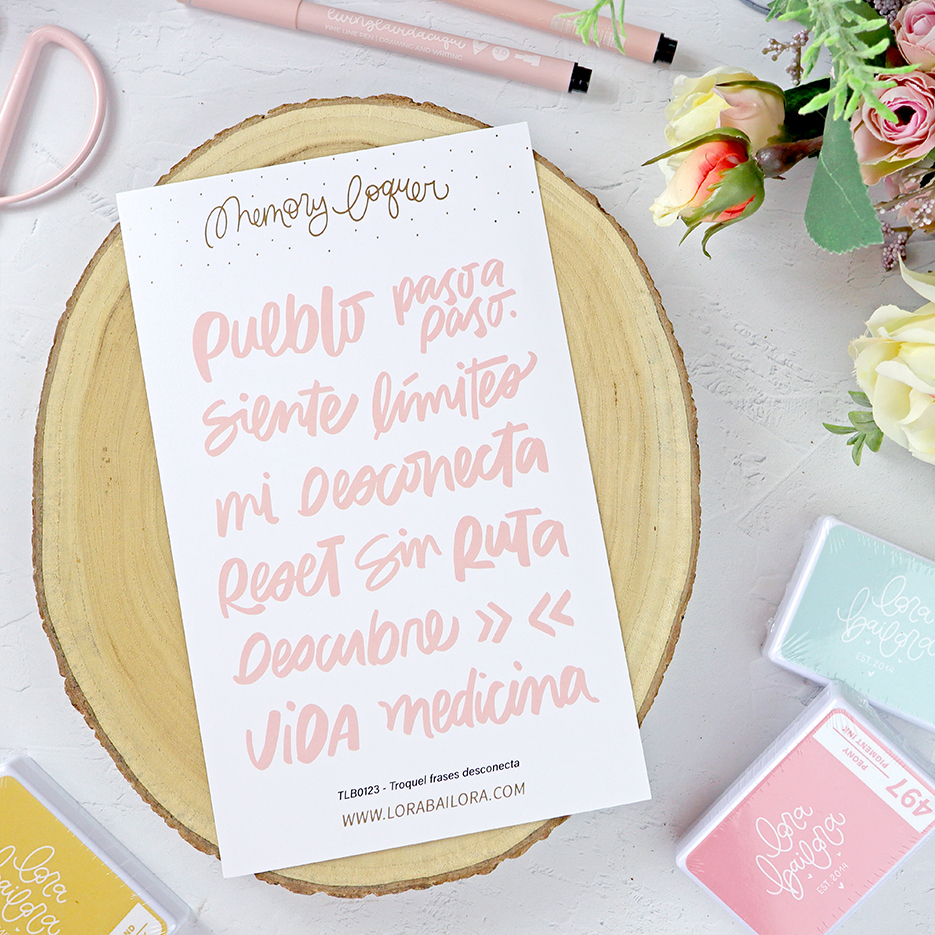 livinglavidacuqui
FINE LINE PEN | DRAWING AND WRITING
Memory loquer
pueblo paso a paso.
siente límites
mi Desconecta
Reset sin Ruta
Descubre >> <<
ViDA medicina
TLB0123 - Troquel frases desconecta
WWW.LORABAILORA.COM
lora
bailora
EST. 2014
PEONY
PIGMENT INK
497
lora
bailora
EST. 2014
lora
bailora